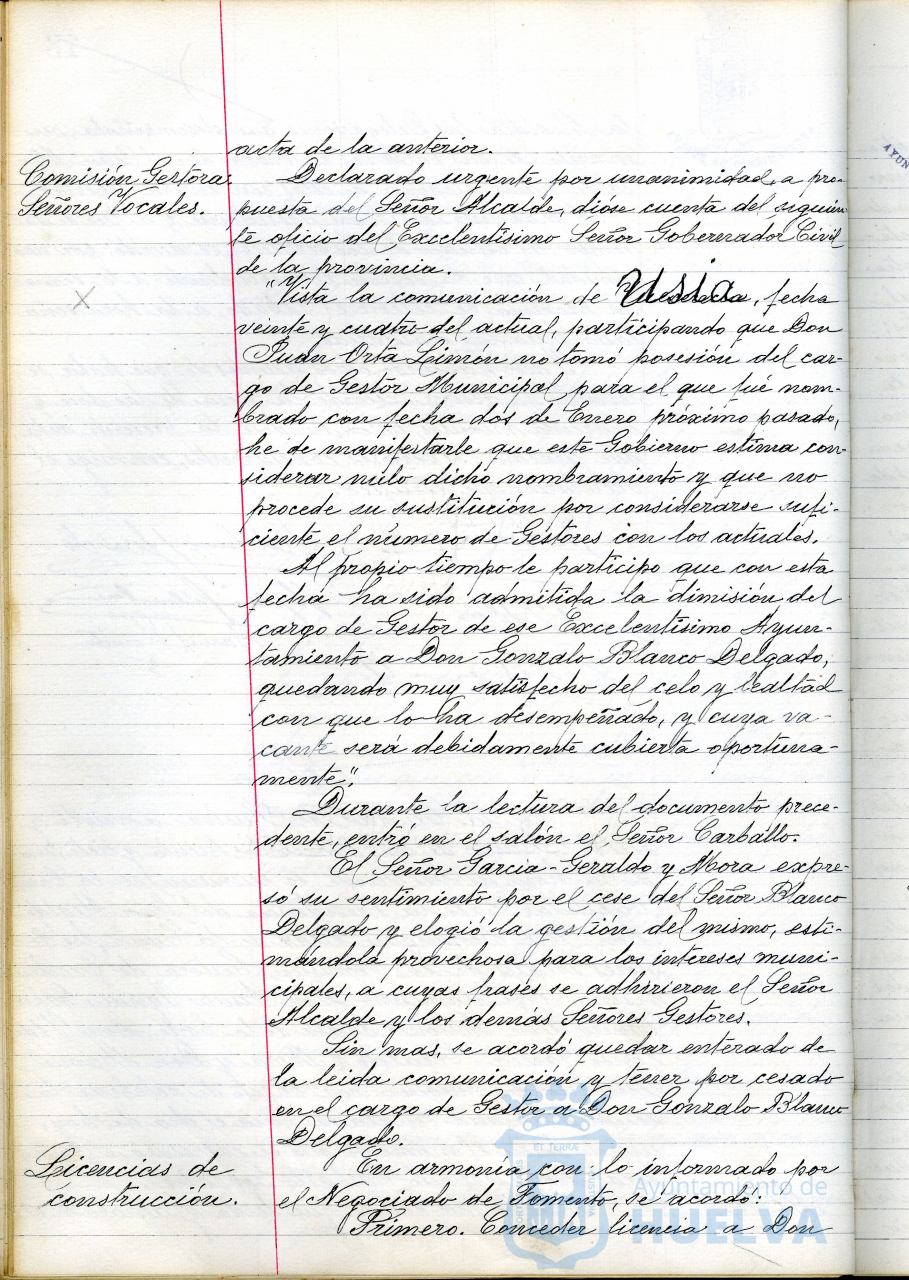 acta de la anterior.
Comisión Gestora:
Señores Vocales.
Declarado urgente por unanimidad, a pro-
puesta del Señor Alcalde, dióse cuenta del siguien-
te oficio del Excelentísimo Señor Gobernador Civil
de la provincia.
"Vista la comunicación de Usia, fecha
veinte y cuatro del actual, participando que Don
Juan Orta Limón no tomó posesión del car-
go de Gestor Municipal para el que fué nom-
brado con fecha dos de Enero próximo pasado,
he de manifestarle que este Gobierno estima con-
siderar nulo dicho nombramiento y que no
procede su sustitución por considerarse sufi-
ciente el número de Gestores con los actuales.
Al propio tiempo le participo que con esta
fecha ha sido admitida la dimisión del
cargo de Gestor de ese Excelentísimo Ayun-
tamiento a Don Gonzalo Blanco Delgado,
quedando muy satisfecho del celo y lealtad
con que lo ha desempeñado, y cuya va-
cante será debidamente cubierta oportuna-
mente".
Durante la lectura del documento prece-
dente, entró en el salón el Señor Carballo.
El Señor Garcia-Geraldo y Mora expre-
só su sentimiento por el cese del Señor Blanco
Delgado y elogió la gestión del mismo, esti-
mándola provechosa para los intereses muni-
cipales, a cuyas frases se adhirieron el Señor
Alcalde y los demás Señores Gestores.
Sin mas, se acordó quedar enterado de
la leida comunicación y tener por cesado
en el cargo de Gestor a Don Gonzalo Blanco
Delgado.
Licencias de
construcción.
En armonía con lo informado por
el Negociado de Fomento, se acordó:
Primero. Conceder licencia a Don
Ayuntamiento de
HUELVA